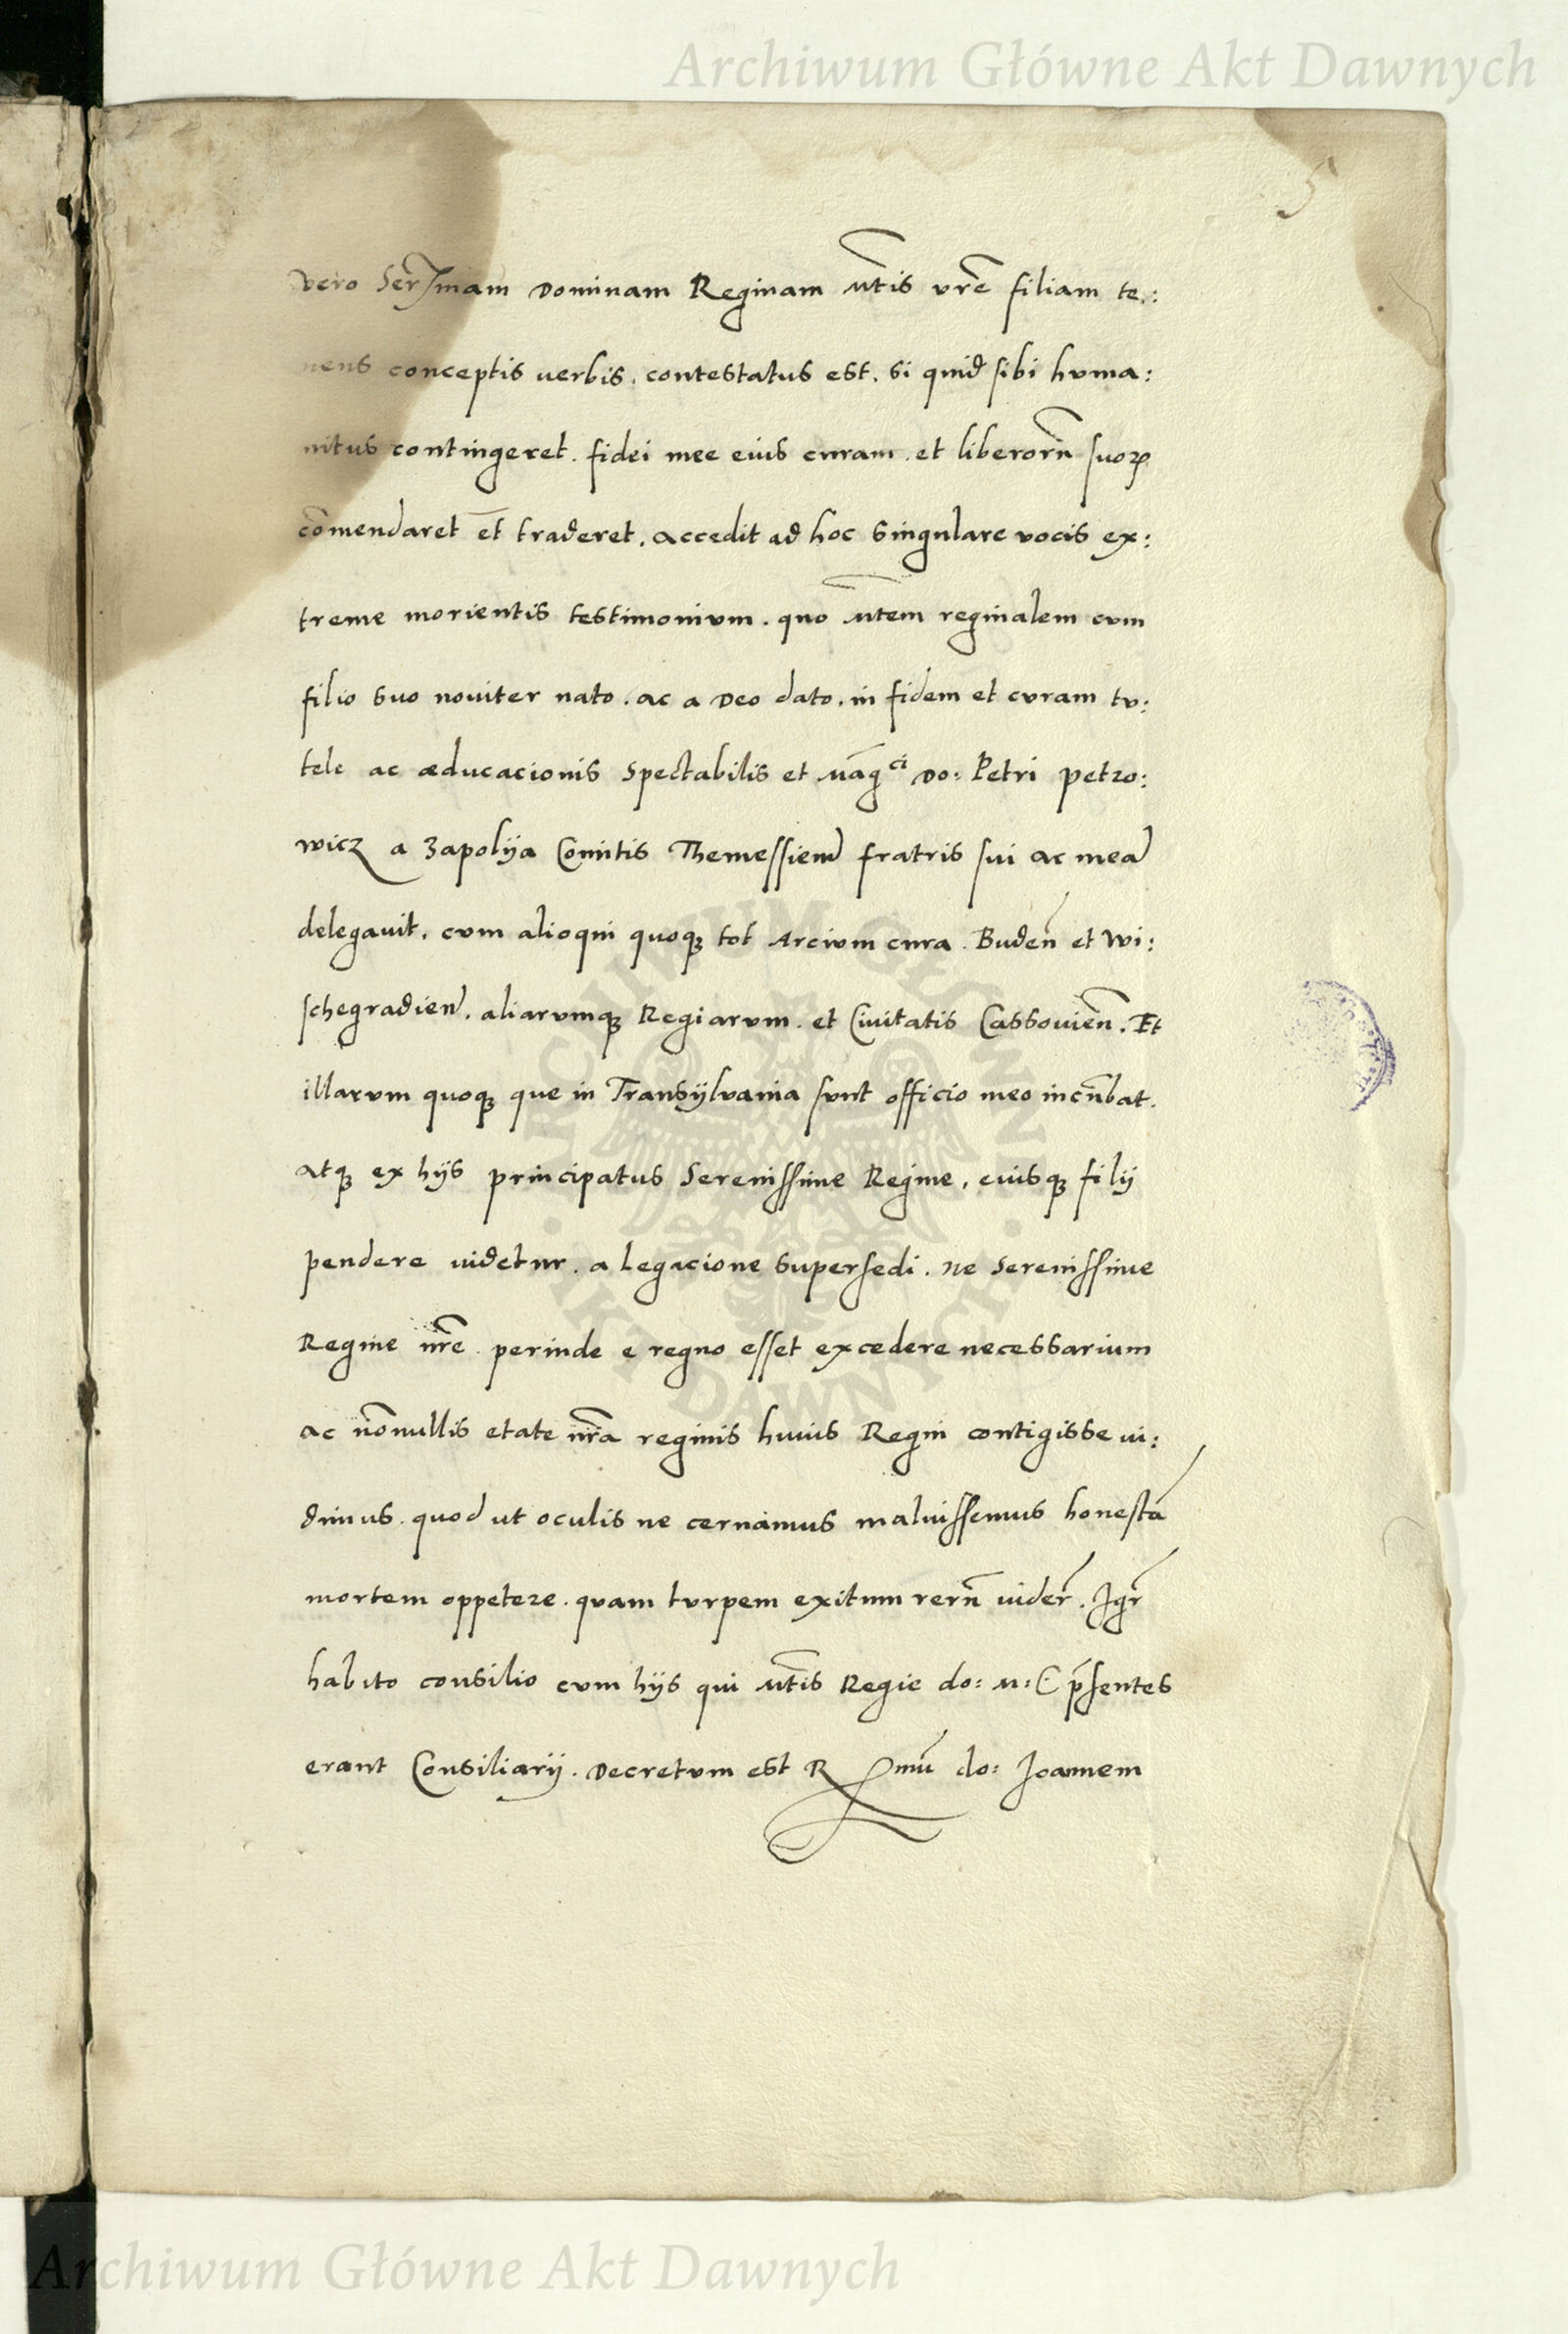 Archiwum Główne Akt Dawnych
5
vero Serᵐᵃᵐ Dominam Reginam Mtis vrē filiam te:
nens conceptis uerbis. contestatus est. si quid sibi huma:
nitus contingeret. fidei mee eius curam. et liberorū suoꝝ
cōmendaret et traderet. accedit ad hoc singulare vocis ex:
treme morientis testimonium. quo Mtem reginalem cum
filio suo nouiter nato. ac a Deo dato. in fidem et curam tu:
tele ac æducacionis Spectabilis et Magci Do: Petri Petro:
wicz a Zapolija Comitis Themessien̄ fratris sui ac meā
delegauit. cum alioqui quoqꝫ tot Arcium cura. Buden̄ et Wi:
schegradien̄. aliarumqꝫ Regiarum. et Ciuitatis Cassouien̄. Et
illarum quoqꝫ que in Transÿluania sunt officio meo incūbat.
atqꝫ ex hijs principatus Serenissime Regine, eiusqꝫ filij
pendere uidetur. a legacione supersedi. ne Serenissime
Regine nr̄e. perinde e regno esset excedere necessarium
ac nōnullis etate nr̄a reginis huius Regni contigisse ui:
dimus. quod ut oculis ne cernamus maluissemus honestā
mortem oppetere. quam turpem exitum rerū uider̄. Igr̄
habito consilio cum hijs qui Mtis Regie do: M: C p̄sentes
erant Consiliarij. Decretum est R mū do: Joannem
ARCHIWUM GŁÓWNE AKT DAWNYCH
Archiwum Główne Akt Dawnych